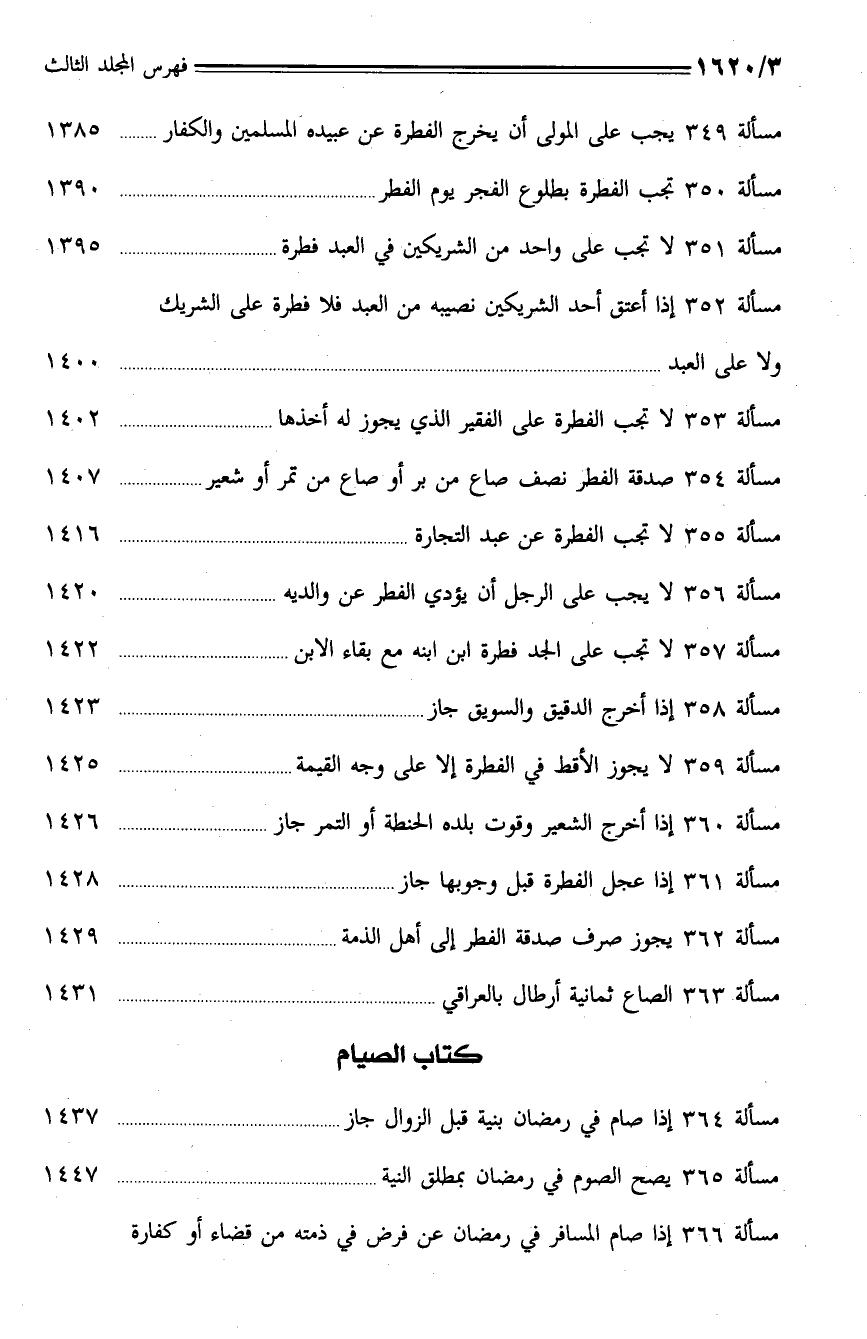 ١٦٢٠/٣ فهرس المجلد الثالث
مسألة ٣٤٩ يجب على المولى أن يخرج الفطرة عن عبيده المسلمين والكفار ........ ١٣٨٥
مسألة ٣٥٠ تجب الفطرة بطلوع الفجر يوم الفطر ........ ١٣٩٠
مسألة ٣٥١ لا تجب على واحد من الشريكين في العبد فطرة ........ ١٣٩٥
مسألة ٣٥٢ إذا أعتق أحد الشريكين نصيبه من العبد فلا فطرة على الشريك
ولا على العبد ........ ١٤٠٠
مسألة ٣٥٣ لا تجب الفطرة على الفقير الذي يجوز له أخذها ........ ١٤٠٢
مسألة ٣٥٤ صدقة الفطر نصف صاع من بر أو صاع من تمر أو شعير ........ ١٤٠٧
مسألة ٣٥٥ لا تجب الفطرة عن عبد التجارة ........ ١٤١٦
مسألة ٣٥٦ لا يجب على الرجل أن يؤدي الفطر عن والديه ........ ١٤٢٠
مسألة ٣٥٧ لا تجب على الجد فطرة ابن ابنه مع بقاء الابن ........ ١٤٢٢
مسألة ٣٥٨ إذا أخرج الدقيق والسويق جاز ........ ١٤٢٣
مسألة ٣٥٩ لا يجوز الأقط في الفطرة إلا على وجه القيمة ........ ١٤٢٥
مسألة ٣٦٠ إذا أخرج الشعير وقوت بلده الحنطة أو التمر جاز ........ ١٤٢٦
مسألة ٣٦١ إذا عجل الفطرة قبل وجوبها جاز ........ ١٤٢٨
مسألة ٣٦٢ يجوز صرف صدقة الفطر إلى أهل الذمة ........ ١٤٢٩
مسألة ٣٦٣ الصاع ثمانية أرطال بالعراقي ........ ١٤٣١
كتاب الصيام
مسألة ٣٦٤ إذا صام في رمضان بنية قبل الزوال جاز ........ ١٤٣٧
مسألة ٣٦٥ يصح الصوم في رمضان بمطلق النية ........ ١٤٤٧
مسألة ٣٦٦ إذا صام المسافر في رمضان عن فرض في ذمته من قضاء أو كفارة